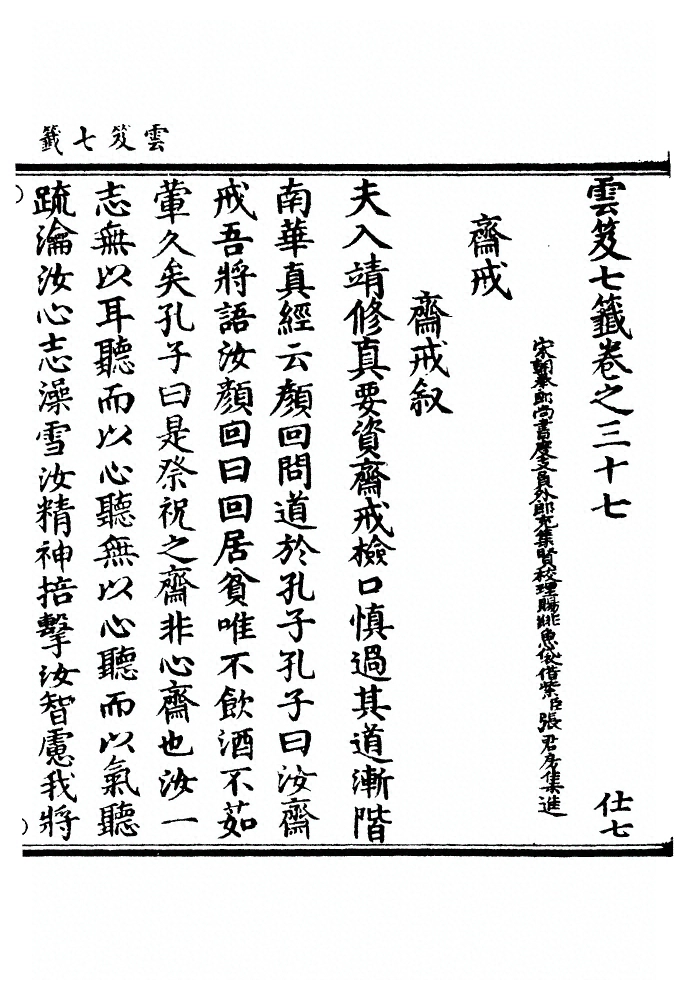 雲笈七籤
雲笈七籤卷之三十七
仕七
宋朝奉郎尚書度支員外郎充集賢校理賜緋魚袋借紫臣張君房集進
齋戒
齋戒叙
夫入靖修真要資齋戒檢口慎過其道漸階
南華真經云顏回問道於孔子孔子曰汝齋
戒吾將語汝顏回曰回居貧唯不飲酒不茹
葷久矣孔子曰是祭祝之齋非心齋也汝一
志無以耳聽而以心聽無以心聽而以氣聽
疏瀹汝心志澡雪汝精神掊擊汝智慮我將